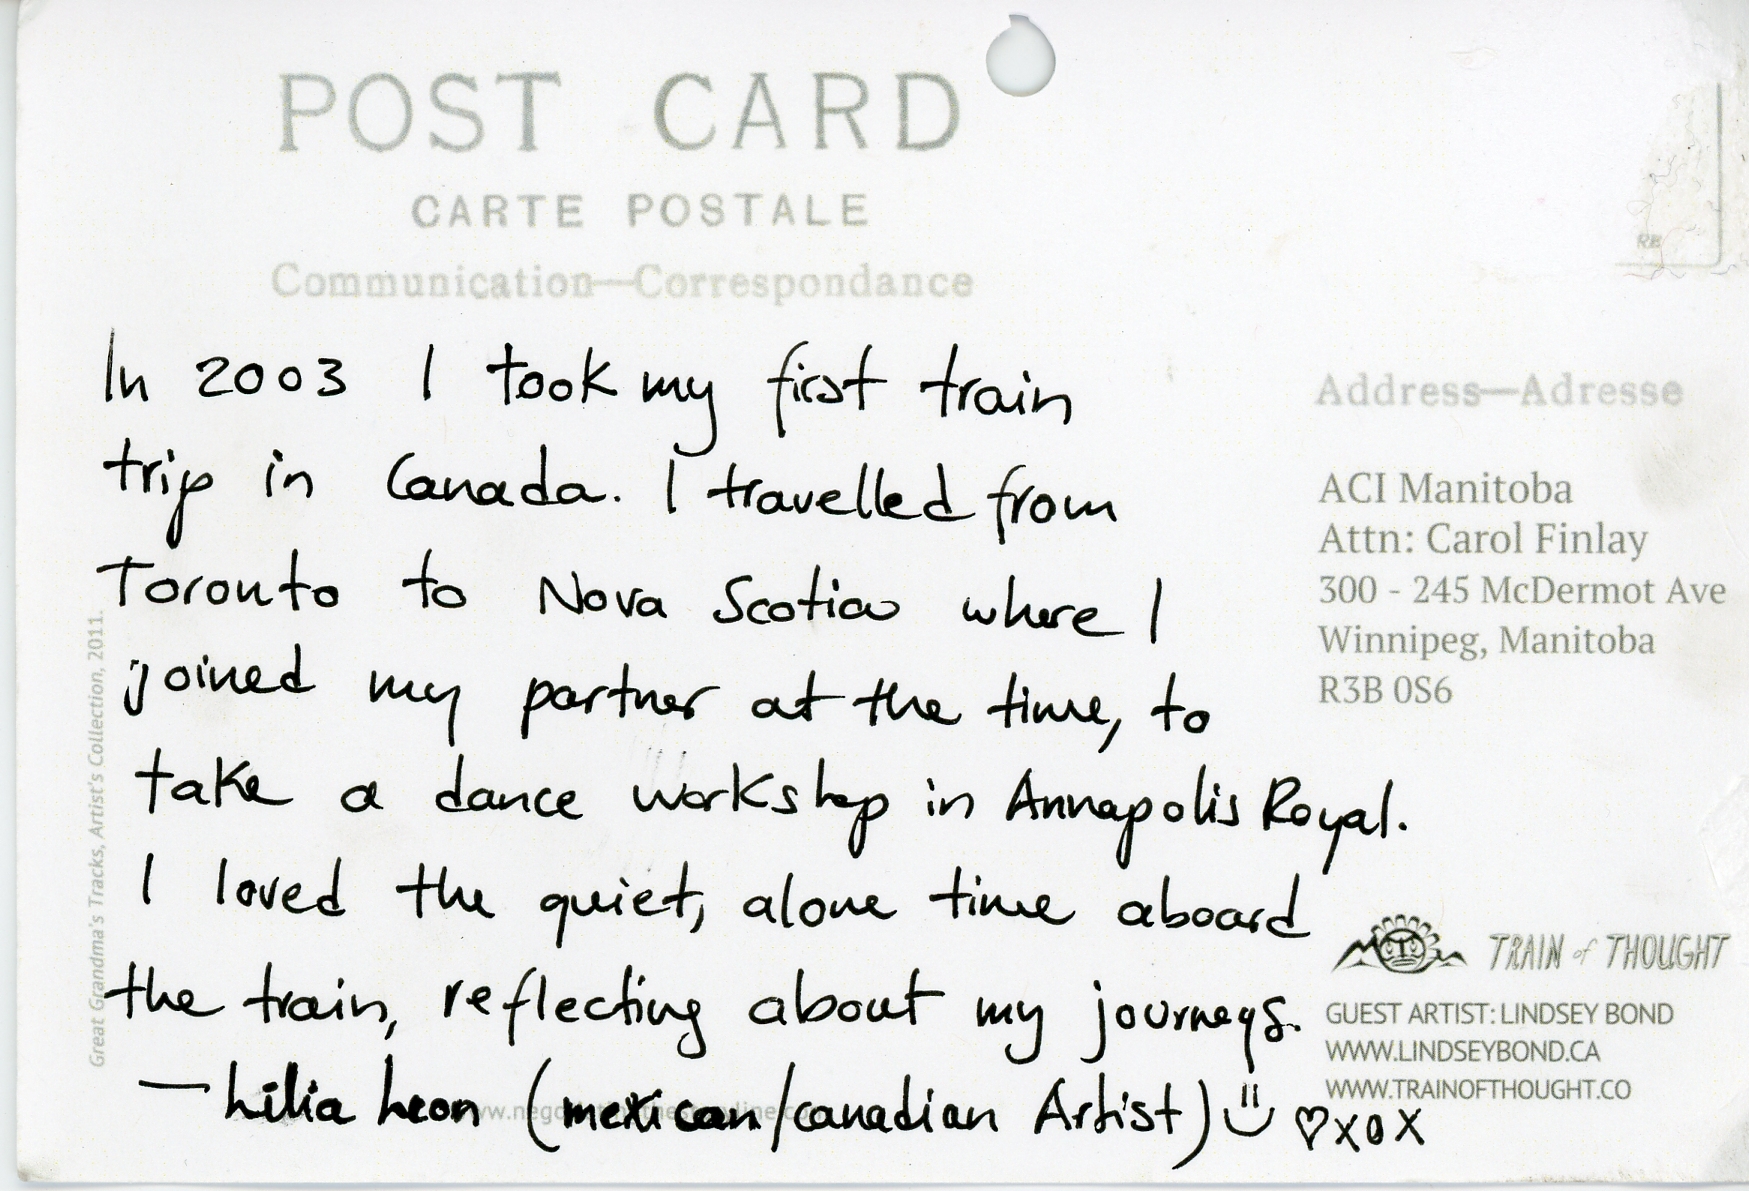 POST CARD
CARTE POSTALE
Communication—Correspondance
In 2003 I took my first train
trip in Canada. I travelled from
Toronto to Nova Scotia where I
joined my partner at the time, to
take a dance workshop in Annapolis Royal.
I loved the quiet, alone time aboard
the train, reflecting about my journeys.
— Lilia Leon (mexican/canadian Artist) ♡xox
Great Grandma's Tracks, Artist's Collection, 2011.
RB
Address—Adresse
ACI Manitoba
Attn: Carol Finlay
300 - 245 McDermot Ave
Winnipeg, Manitoba
R3B 0S6
TRAIN of THOUGHT
GUEST ARTIST: LINDSEY BOND
WWW.LINDSEYBOND.CA
WWW.TRAINOFTHOUGHT.CO